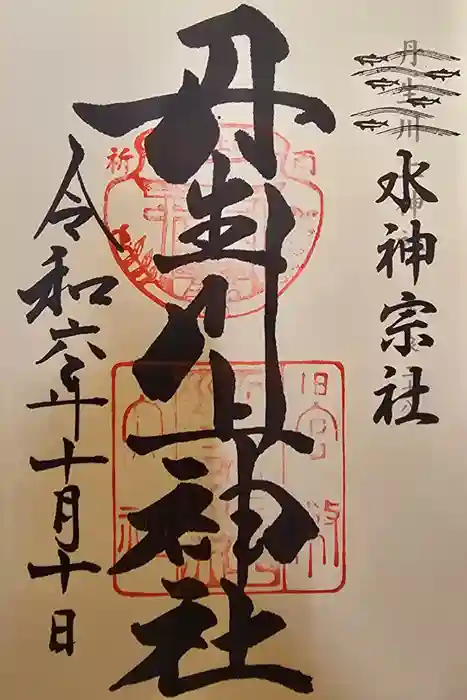 水神宗社
丹生川上神社
令和六年十月十日